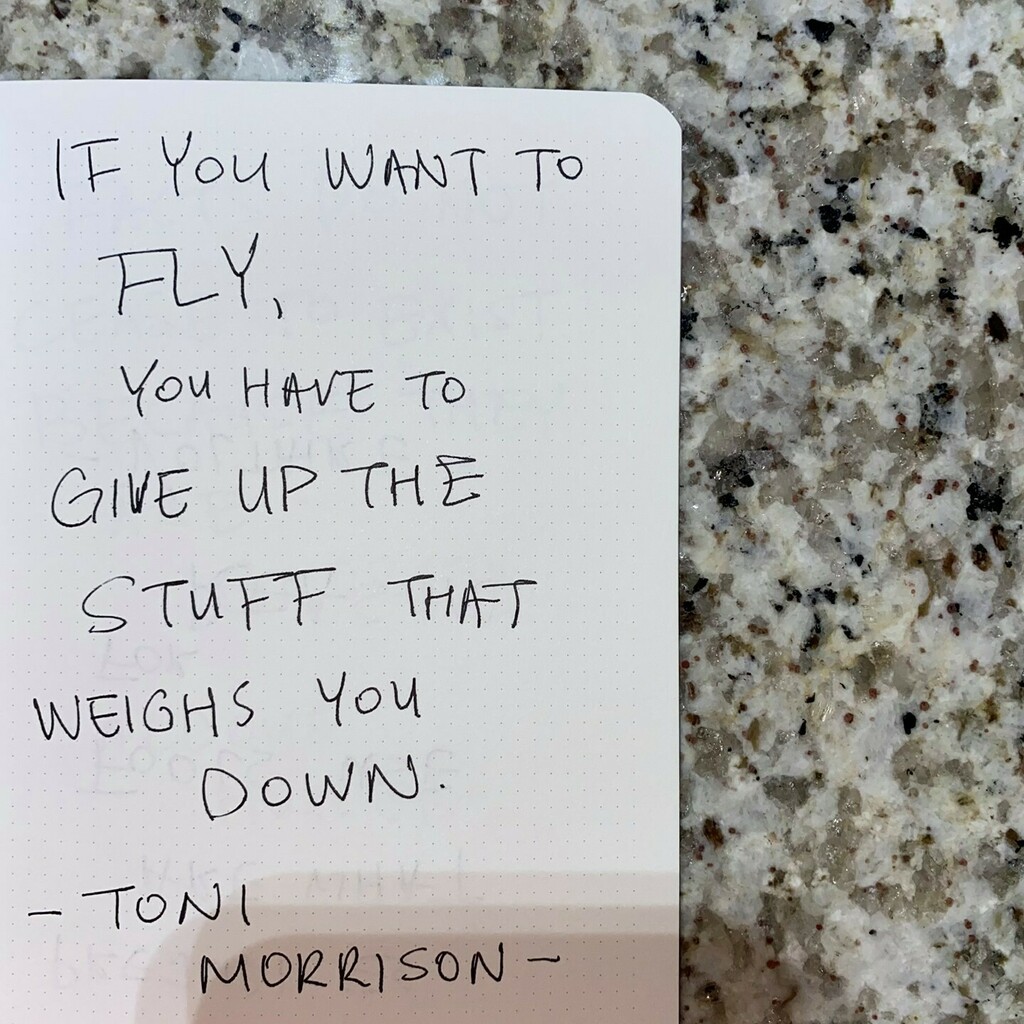 IF YOU WANT TO
FLY,
YOU HAVE TO
GIVE UP THE
STUFF THAT
WEIGHS YOU
DOWN.
- TONI
MORRISON -